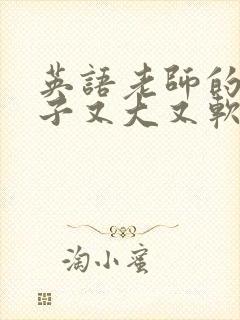 英語老師的
子又大又軟
淘小蜜